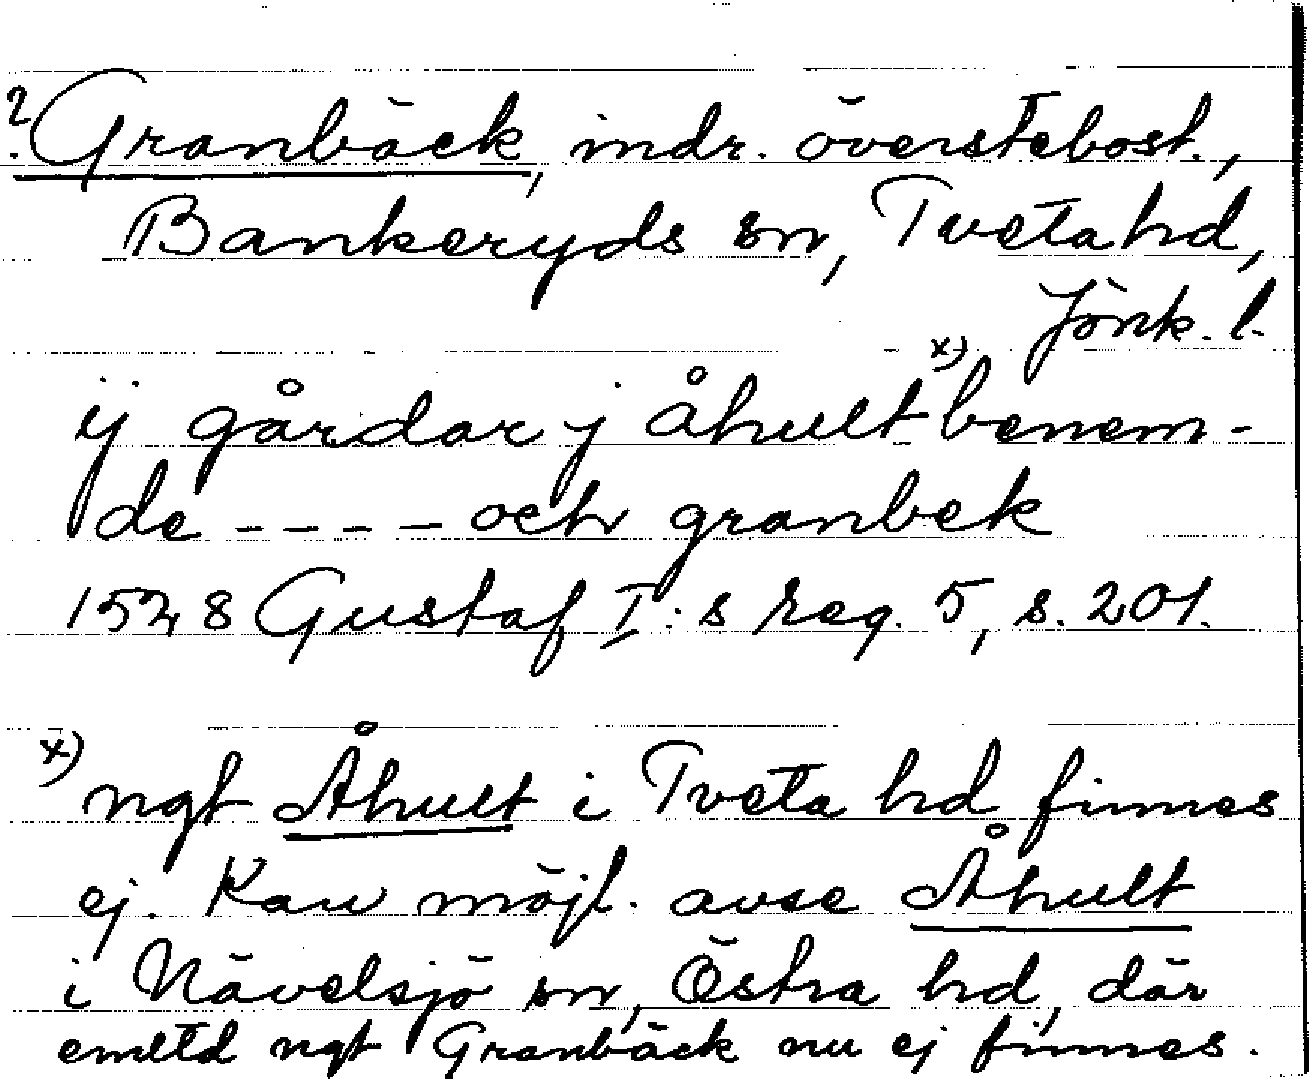 ? Granbäck, indr. överstebost.,
Bankeryds sn, Tveta hd,
Jönk. l.
ij gårdar j åhult x) benem-
de - - - - och granbek
1528 Gustaf I:s reg. 5, s. 201.
x) ngt Åhult i Tveta hd finnes
ej. Kan möjl. avse Åhult
i Nävelsjö sn, Östra hd, där
emltd ngt Granbäck nu ej finnes.